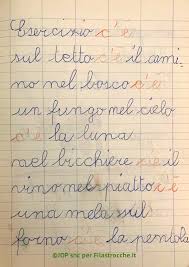 Esercizio c'è
sul tetto c'è il cami
no nel bosco c'è
un fungo nel cielo
c'è la luna
nel bicchiere c'è il
vino nel piatto c'è
una mela sul
forno c'è la pentola
©IOP snc per Filastrocche.it